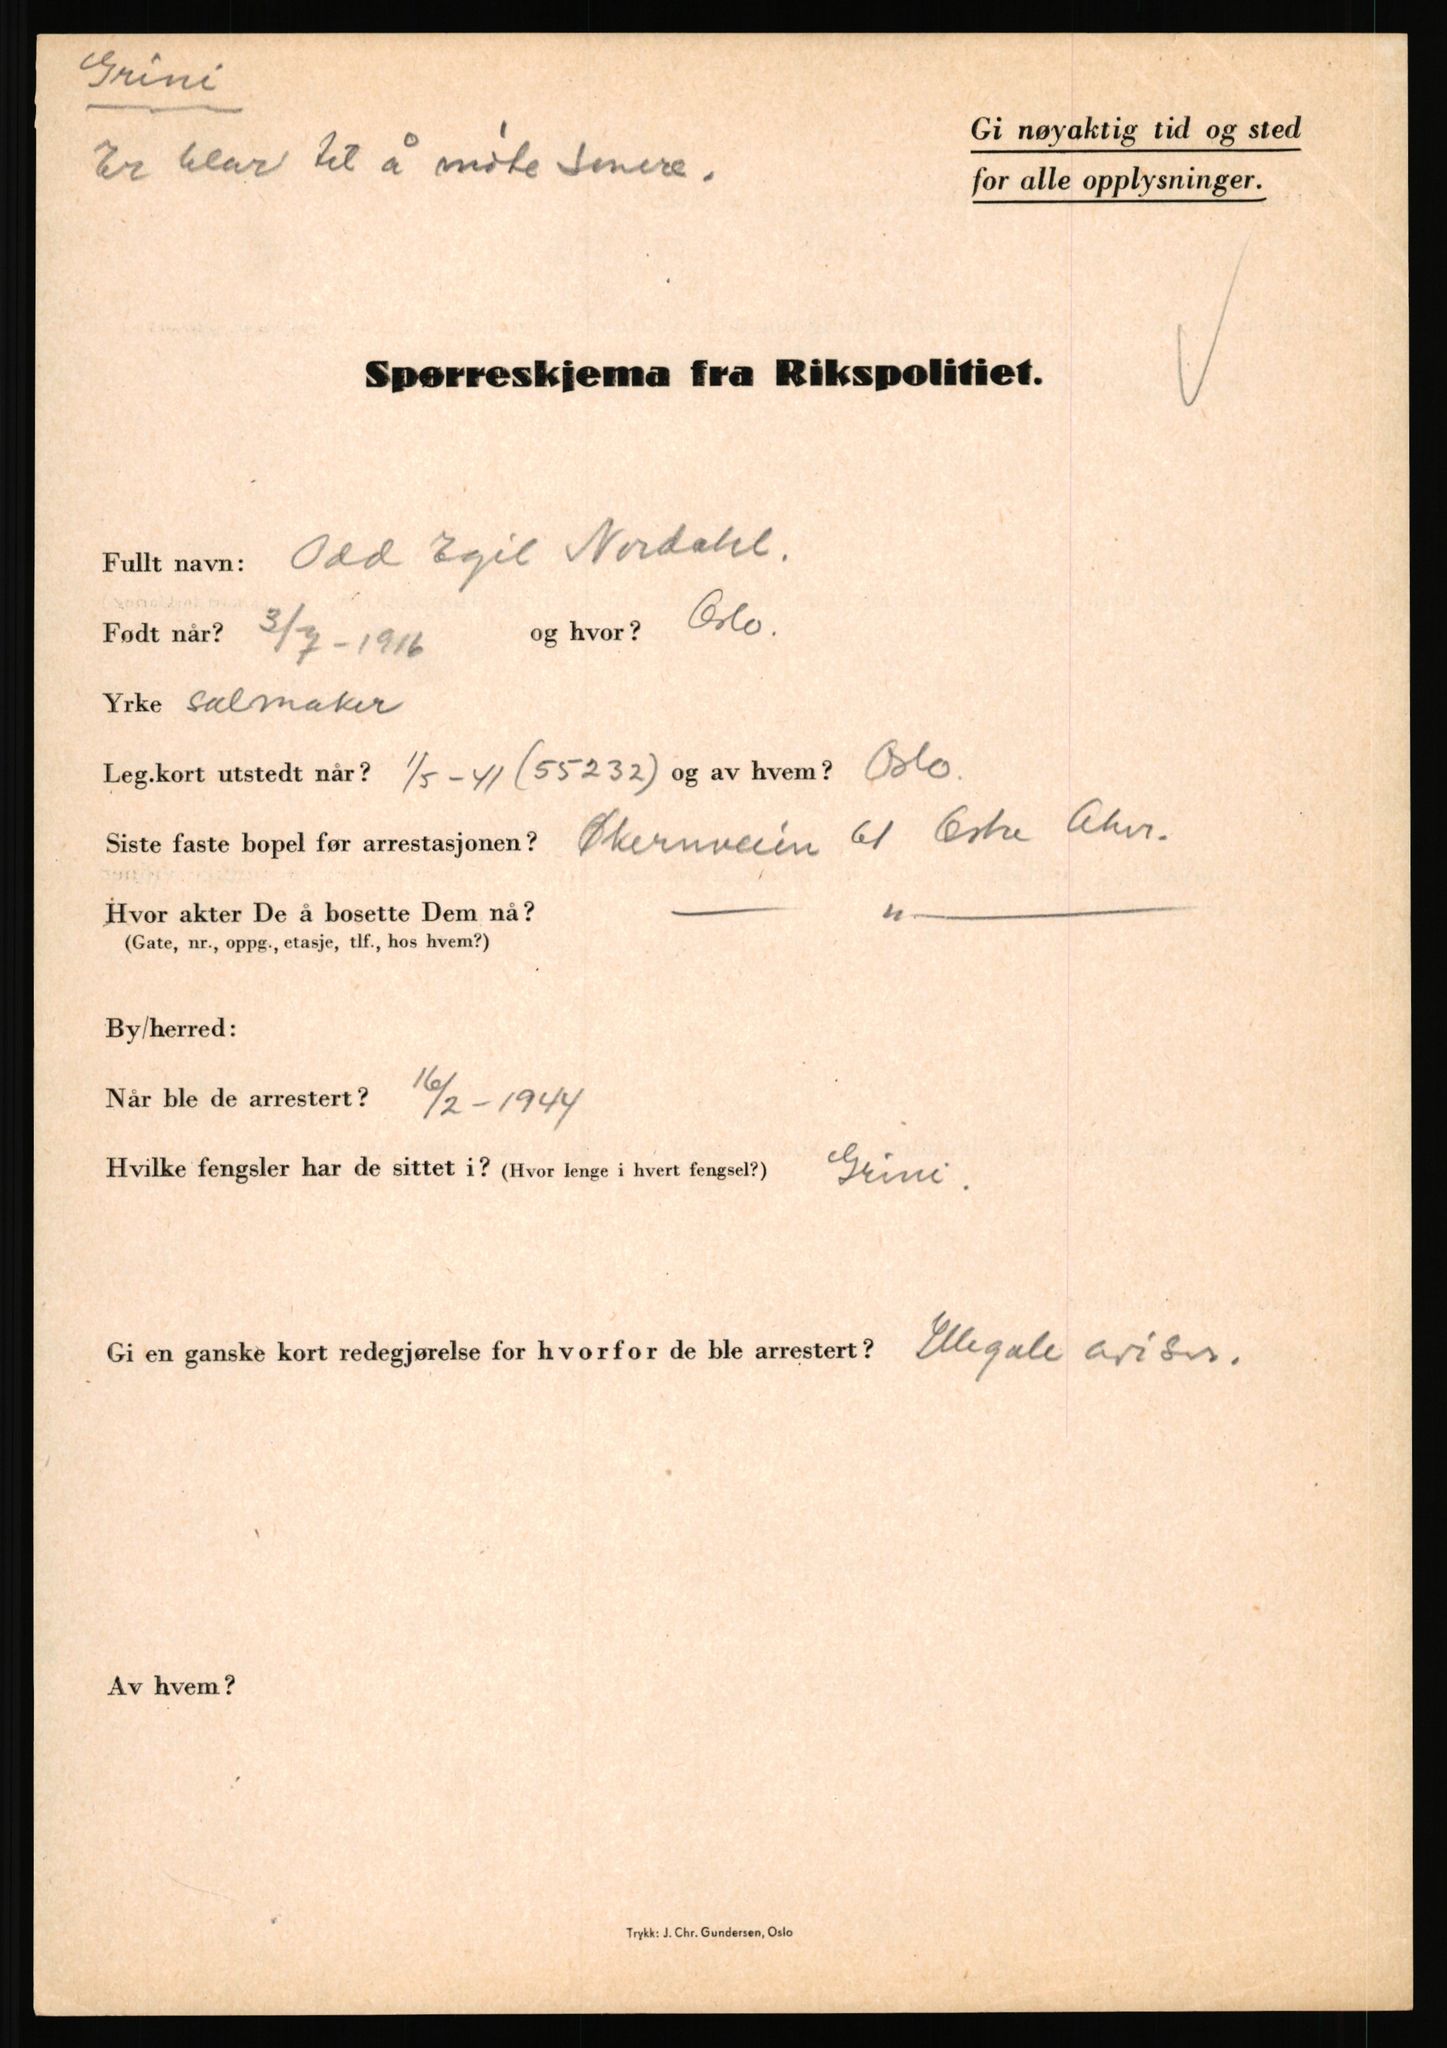 Grini
Er klar til å møte senere.
Gi nøyaktig tid og sted
for alle opplysninger.
Spørreskjema fra Rikspolitiet.
Fullt navn: Odd Egil Nordahl.
Født når? 3/7-1916 og hvor? Oslo.
Yrke salmaker
Leg.kort utstedt når? 1/5-41 (55232) og av hvem? Oslo.
Siste faste bopel før arrestasjonen? Økernveien Østre Aker.
Hvor akter De å bosette Dem nå? — " —
(Gate, nr., oppg., etasje, tlf., hos hvem?)
By/herred:
Når ble de arrestert? 16/2-1944
Hvilke fengsler har de sittet i? (Hvor lenge i hvert fengsel?) Grini.
Gi en ganske kort redegjørelse for hvorfor de ble arrestert? Illegale aviser.
Av hvem?
Trykk: J. Chr. Gundersen, Oslo